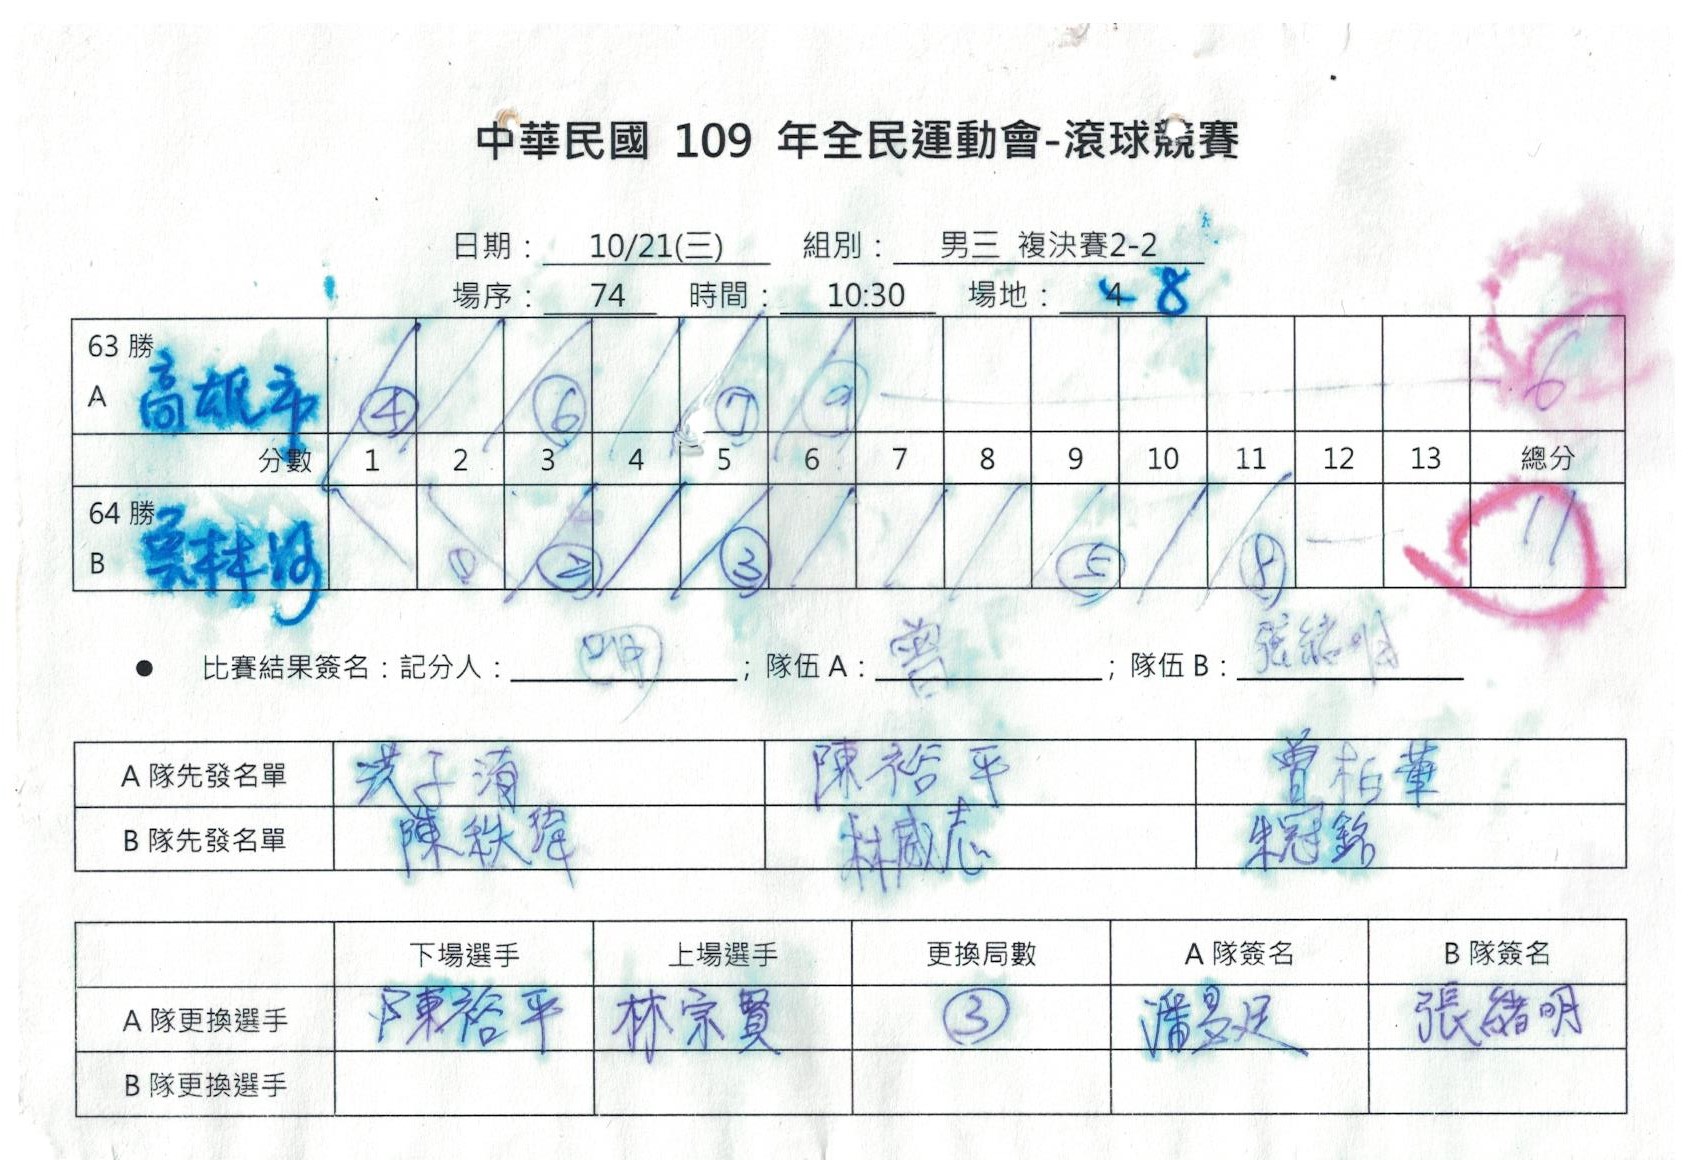 中華民國 109 年全民運動會-滾球競賽
日期： 10/21(三) 組別： 男三 複決賽2-2
場序： 74 時間： 10:30 場地： 4 8
63 勝
A 高雄市 ④ ⑥ ⑦ 6
分數 1 2 3 4 5 6 7 8 9 10 11 12 13 總分
64 勝
B 林 ① ② ③ ⑤ ⑧ 11
● 比賽結果簽名：記分人： 明 ；隊伍 A： 曾 ；隊伍 B： 張緒明
A 隊先發名單 洪子 陳裕平 曾柏華
B 隊先發名單 陳秩緯 林威志 朱冠銘
下場選手 上場選手 更換局數 A 隊簽名 B 隊簽名
A 隊更換選手 陳裕平 林宗賢 ③ 潘 張緒明
B 隊更換選手